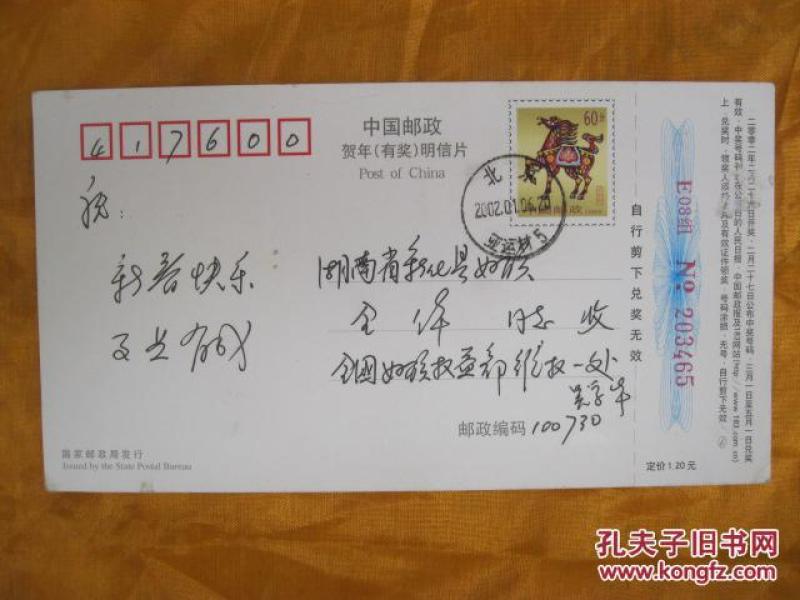 417600
中国邮政
贺年(有奖)明信片
Post of China
60分
中国邮政
北京
2002.01.06.20
亚运村5
祝:
新春快乐
事业有成
湖南省新化县妇联
全体 同志 收
全国妇联权益部维权一处
邮政编码 100730
国家邮政局发行
Issued by the State Postal Bureau
自行剪下兑奖无效
E08组 No. 203465
二零零二年二月二十六日开奖·二月二十七日公布中奖号码·三月一日至五月一日兑奖
有效·中奖号码刊登在公布日的人民日报、中国邮政报及183网站(http://www.183.com.cn)
上·兑奖时,领奖人须持本片及有效证件领奖·号码涂损·无号·自行剪下无效
定价1.20元
孔夫子旧书网
www.kongfz.com